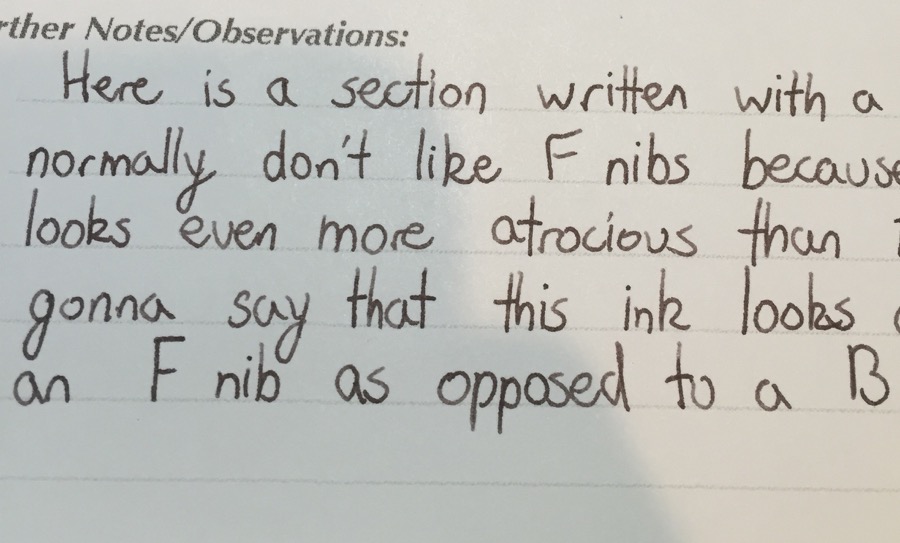 rther Notes/Observations:
Here is a section written with a
normally don't like F nibs because
looks even more atrocious than
gonna say that this ink looks
an F nib as opposed to a B